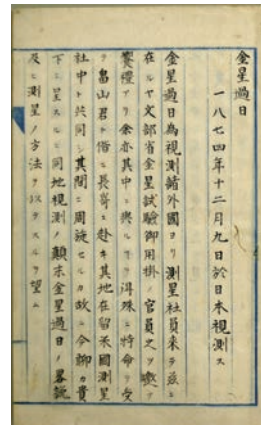 金星過日
一八七四年十二月九日於日本視測ス
金星過日為視測諸外國ヨリ測星社員来テ茲ニ
在ルヤ文部省金星試驗御用掛ノ官員之ヲ
饗禮アリ余亦其中ニ與ル乃洋殊ニ特命ヲ受
ケ畠山君ト偕ニ長崎ニ赴キ其地在留米國測星
社中ト共同シ其間ニ周旋セルカ故ニ今聊カ貴
下ニ呈スルニ同地視測ノ顛末金星過日ノ畧説
及ヒ測星ノ方法ヲ以テスルヲ望ム